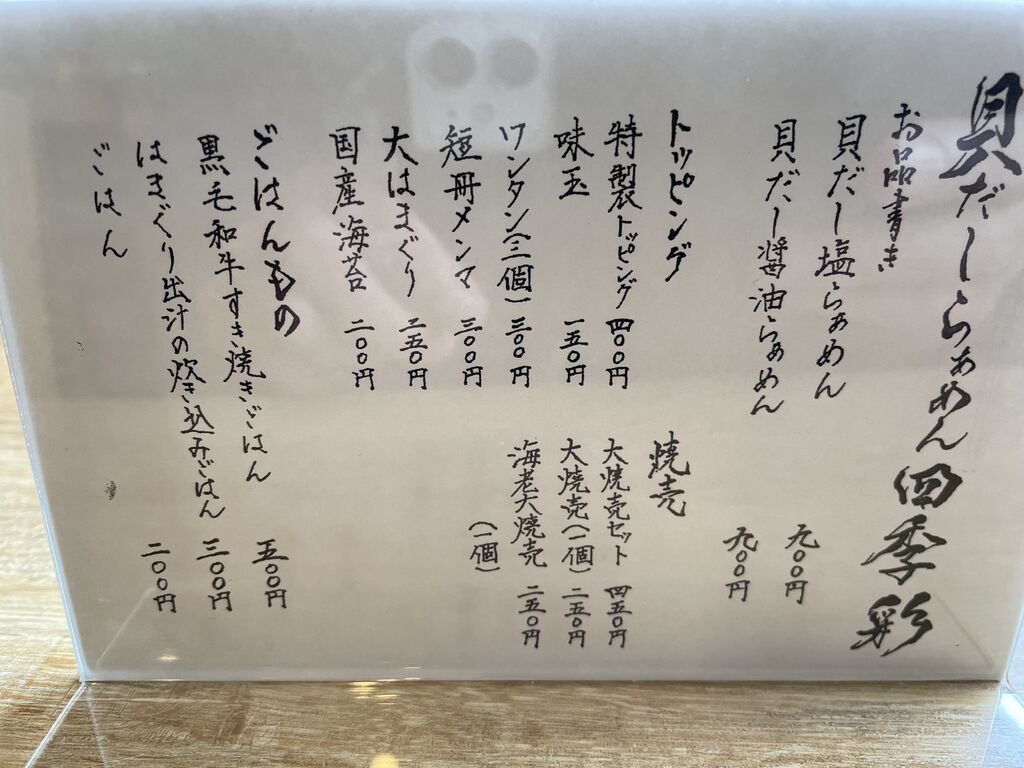 貝だしらぁめん四季彩
お品書き
貝だし塩らぁめん 九〇〇円
貝だし醤油らぁめん 九〇〇円
トッピング
特製トッピング 四〇〇円
味玉 一五〇円
ワンタン(三個) 三〇〇円
短冊メンマ 三〇〇円
大はまぐり 二五〇円
国産海苔 二〇〇円
焼売
大焼売セット 四五〇円
大焼売(一個) 二五〇円
海老大焼売 二五〇円
(一個)
ごはんもの
黒毛和牛すき焼きごはん 五〇〇円
はまぐり出汁の炊き込みごはん 三〇〇円
ごはん 二〇〇円